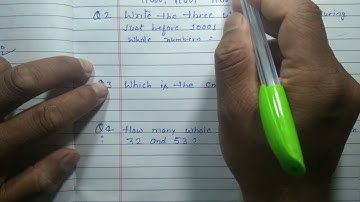 Q2 Write the three
just before 1000
whole numbers
Q3 Which is the
Q4 How many whole
: 32 and 53?